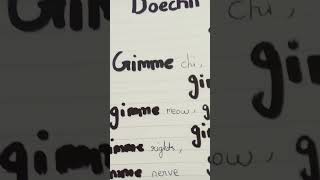 Doechii
Gimme chi,
gi
gimme meow,
gi
gimme right,
ow,
gimme nerve
gi